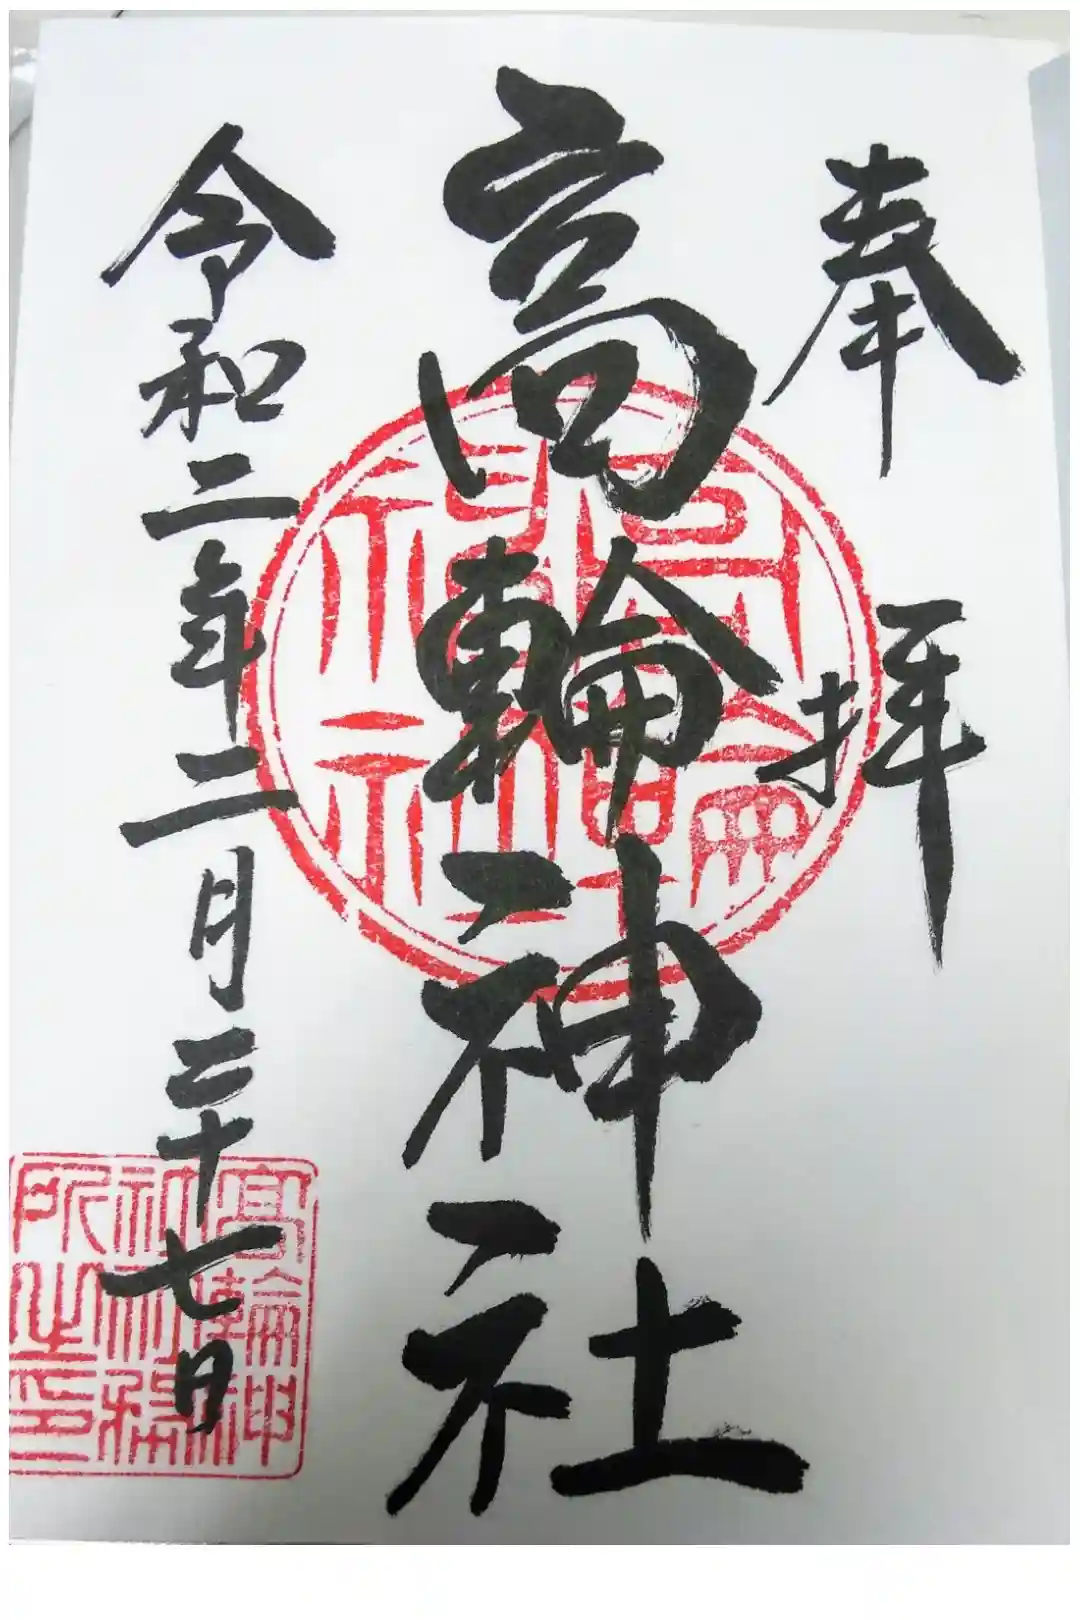 奉拝
高輪神社
令和二年二月二十七日
高輪神社
高輪神
社社務
所之印